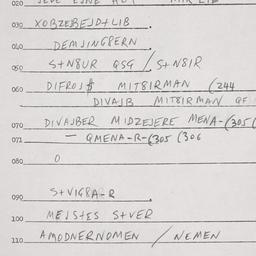 020
030 XOBZEBEJD+LIB
040 DEMJINGBERN
050 S+N8UR QSG / S+N8IR
060 DIFROJ$ MIT8IRMAN (244
DIVAJB MIT8IRMAN QF
070 DIVAJBER MIDZEJERE MENA-(305(
071 — QMENA-R-(305 (306
080 0
090 S+VIG8A-R
100 MEJS+ES S+VER
110 AMODNERNOMEN / NEMEN